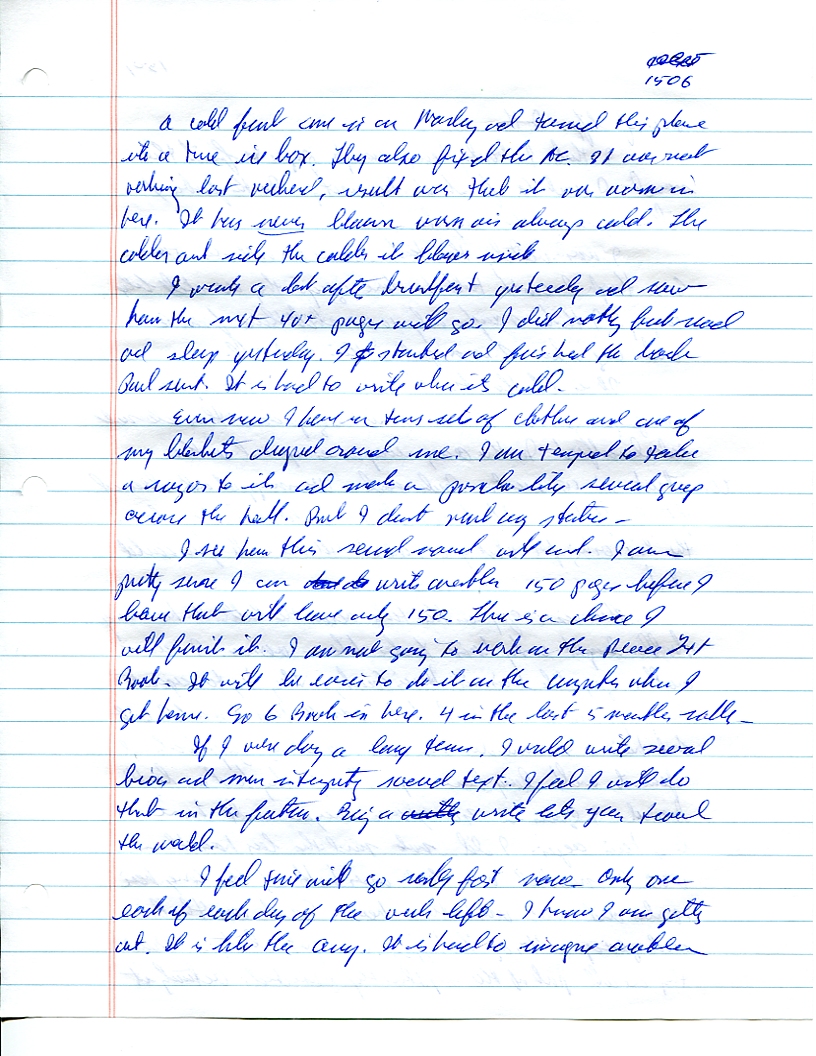 1506
A cold front came in on Monday and turned this place
into a true ice box. They also fixed the AC. It was not
working last weekend, result was that it was warm in
here. It has never blown warm air always cold. The
colder out side the colder it blows inside
I wrote a lot after breakfast yesterday and saw
how the next 40+ pages will go. I did nothing but read
and sleep yesterday. I started and finished the book
Paul sent. It is hard to write when its cold.
Even now I have on two sets of clothes and one of
my blankets draped around me. I am tempted to take
a razor to it and make a poncho like several guys
across the hall. But I don't
I see how this second novel will end. I am
pretty sure I can write another 150 pages before I
leave that will leave only 150. There is a chance I
will finish it. I am not going to work on the
Book. It will be easier to do it on the computer when I
get home. So 6 Books in here. 4 in the last 5 months really
If I were doing a long term, I would write several
books and more
that in the future. Being a write lets you travel
the world.
I feel time will go really fast now. Only one
each of each day of the week left - I know I am getting
out. It is like the army. It is hard to imagine another